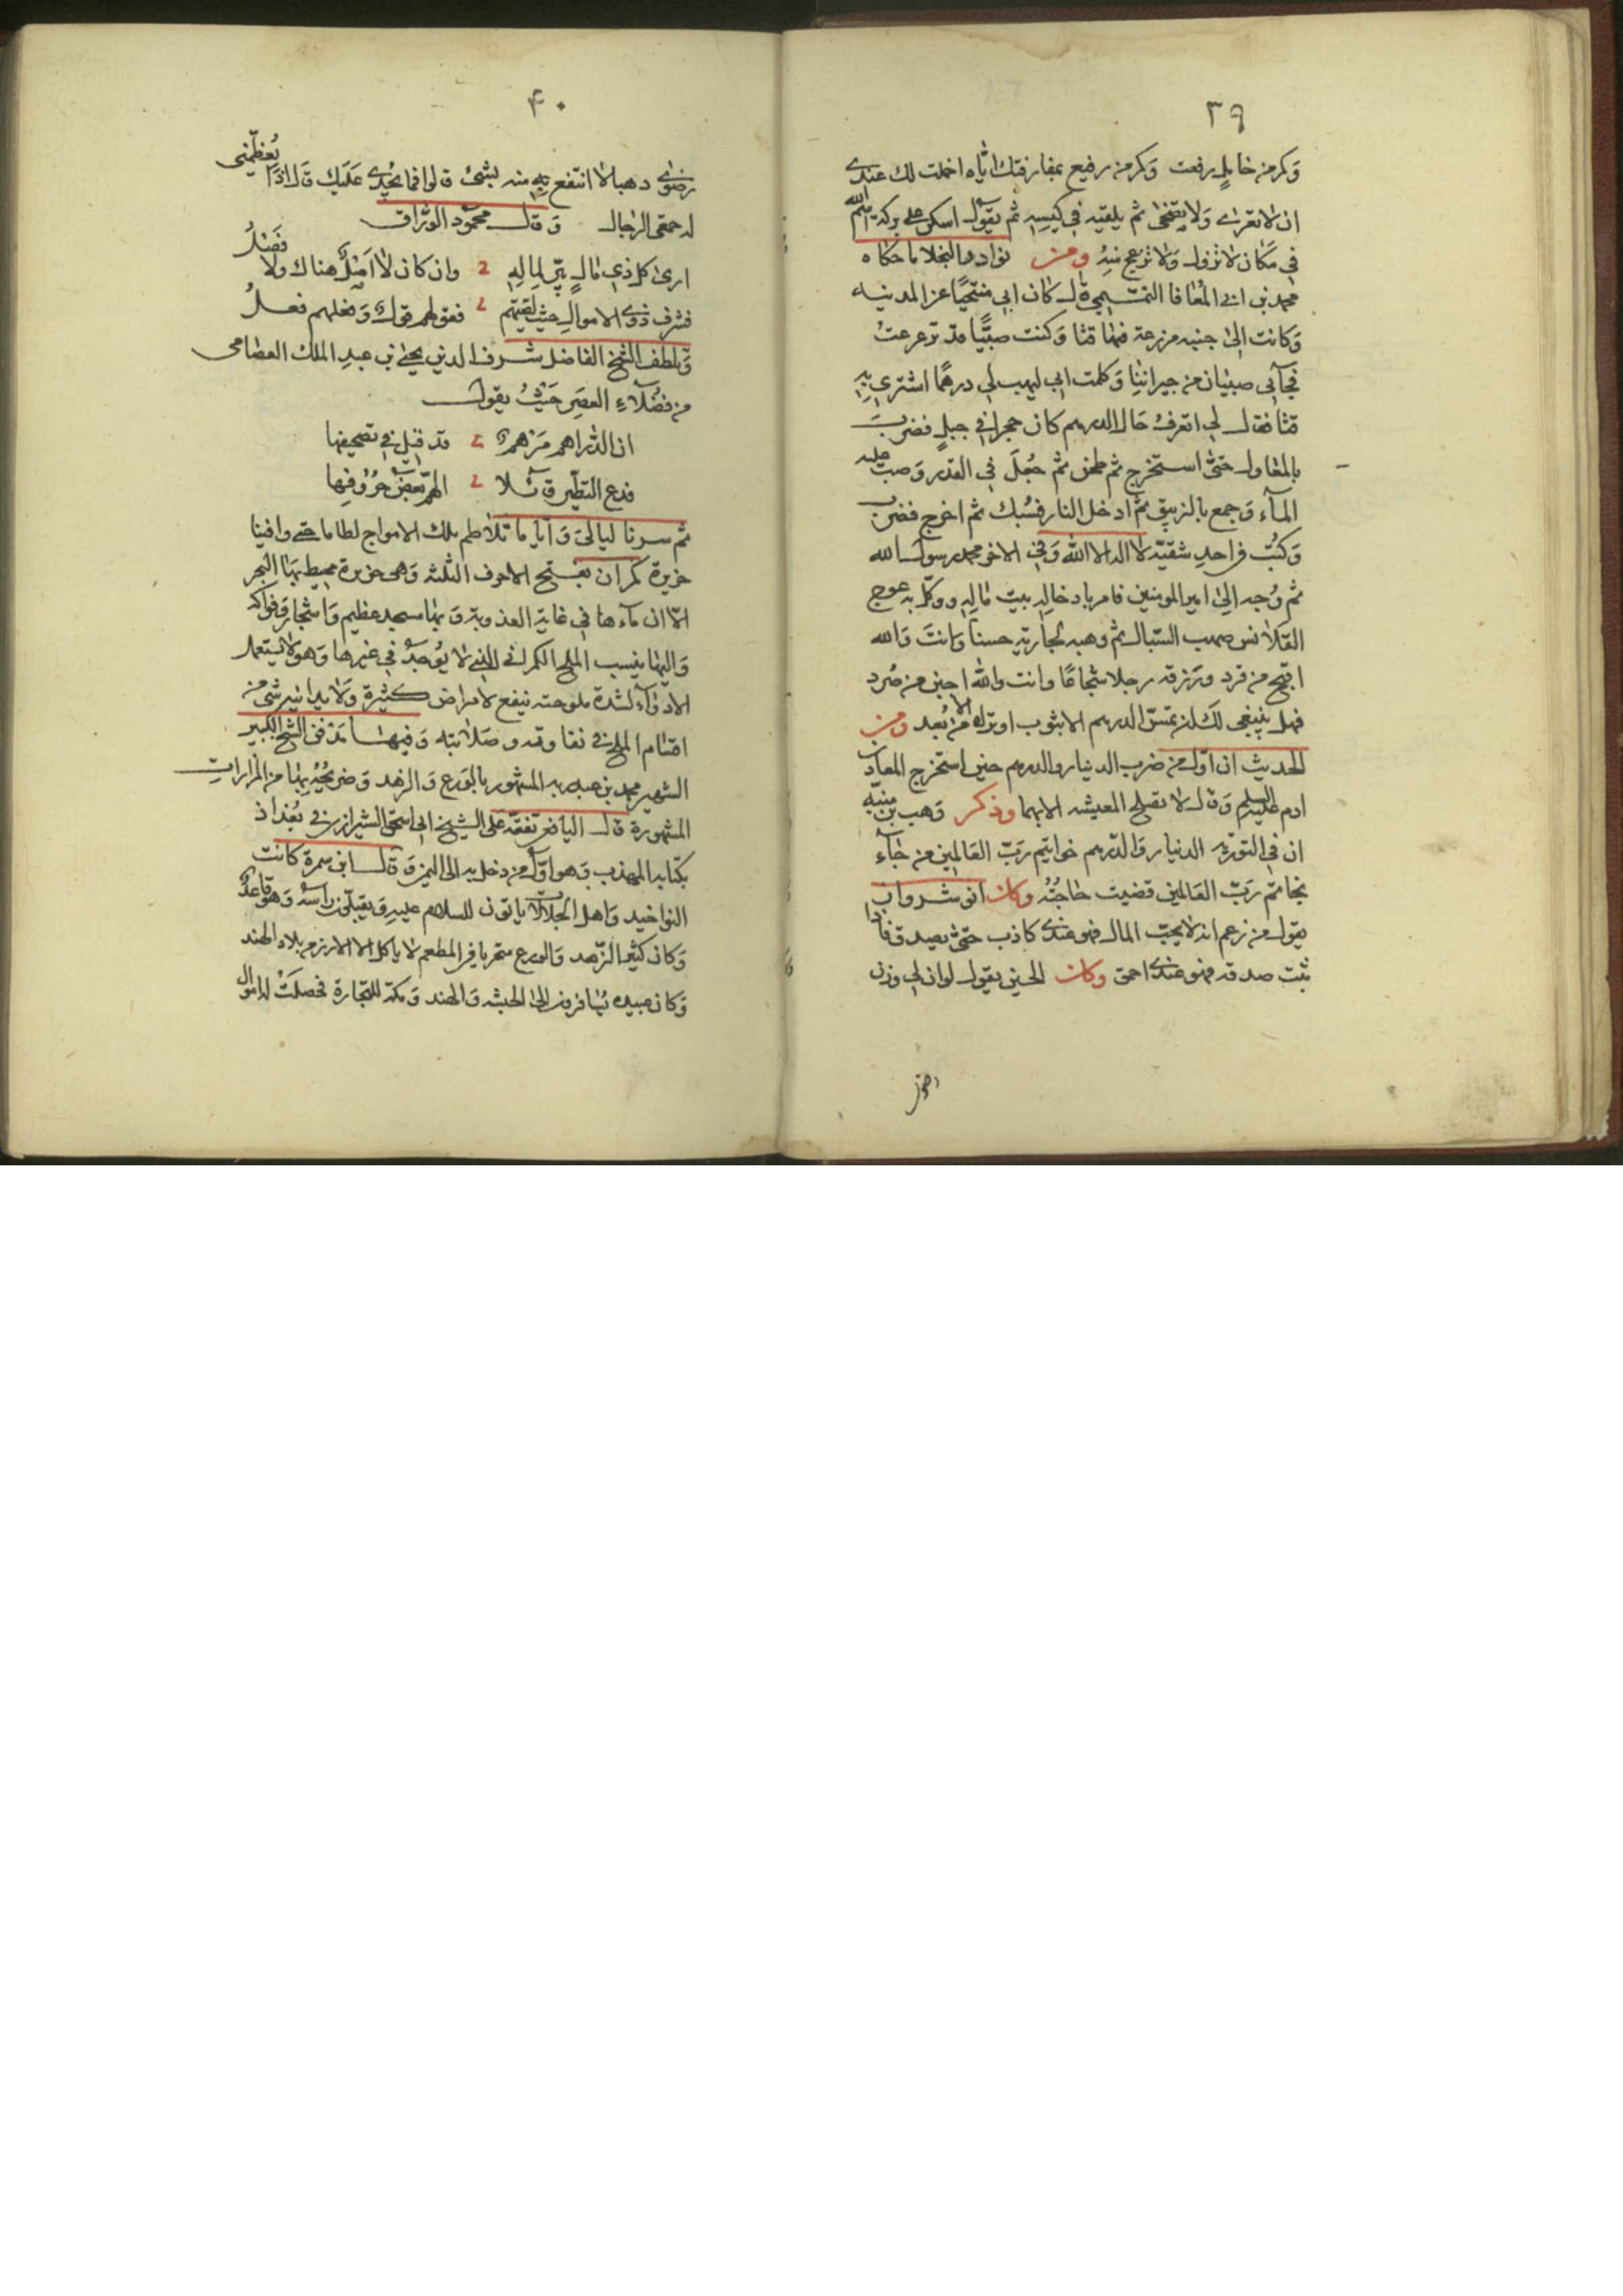 ٣٩
وكم من خامل رفعت وكم من رفيع بمفارقتك اياه اخملت لك عندي
ان لا تعرى ولا تضحى ثم يلقيه في كيسه ثم يقول اسكن على بركة الله
في مكان لا تزول ولا تزعج منه ومن نوادر البخلا ما حكاه
محمد بن ابي المعافا قال كان ابي متنحيا عن المدينه
وكانت الى جنبه مزرعة فيها قثا وكنت صبيا قد ترعرعت
فجآني صبيان من جيراننا وكلمت ابي ليهب لي درهما اشتري به
قثا فقال لي اتعرف حال الدرهم كان حجرا في جبل فضرب
بالمعاول حتى استخرج ثم طحن ثم جعل في القدر وصب عليه
المآء وجمع بالزيبق ثم ادخل النار فسبك ثم اخرج فضرب
وكتب في احد شقيه لا اله الا الله وفي الاخر محمد رسول الله
ثم وجه الى امير المومنين فامر بادخاله بيت ماله ووكل به عوج
القلانس صهب السبال ثم وهبه لجارية حسنا وانت والله
اقبح من قرد ورزقه رجلا شجاعا وانت والله اجبن من صرد
فهل ينبغي لك ان تمس الدرهم الا بثوب او تراه الا من بعد ومن
الحديث ان اول من ضرب الدينار والدرهم حين استخرج المعادن
ادم عليه السلم وقال لا تصلح المعيشه الا بهما وذكر وهب بن منبه
ان في التورية الدنيار والدرهم خواتيم رب العالمين من جآء
بخاتم رب العالمين قضيت حاجته وكان انوشروان
يقول من زعم انه لا يحب المال فهو عندي كاذب حتى يصدق فاذا
ثبت صدقه فهو عندي احمق وكان الحسن يقول لو ان لي وزن
رضوى
٤٠
رضوى دهبا لا انتفع به منه بشئ قالوا فما يجدي عليك قال اذا يعظمني
له حمقى الرجال وقال محمود الوراق
ارى كل ذي مال يبر لماله وان كان لا اصل هناك ولا فضل
فشرف ذوي الاموال حيث لقيتهم فقولهم قول وفعلهم فعل
وتلطف الشيخ الفاضل شرف الدين يحيى بن عبد الملك العصامي
من فضلآء العصر حيث يقول
ان الدراهم مرهم قد قيل في تصحيفها
فدع التطير قآئلا الهم بعض حروفها
ثم سرنا ليالي واياما تلاطم بلك الامواج لطاما حتى وافينا
جزيرة كمران بفتح الاحرف الثلثه وهى جزيرة محيط بها البحر
الا ان مآءها في غاية العذوبة وبها مسجد عظيم واشجار وفواكه
واليها ينسب الملح الكمراني الذي لا يوجد في غيرها وهو لا يستعمل
الا دوآء لشدة ملوحته ينفع لامراض كثيرة ولا يدانيه شي من
اقسام الملح في نقاوته وصلابته وفيها مدفن الشيخ الكبير
الشهير محمد بن عبدويه المشهور بالورع والزهد وضريحه بها من المزارات
المشهورة قال اليافعي تفقه على الشيخ ابي اسحق الشيرازي في بغداذ
بكتابه المهذب وهو اول من دخل به الى اليمن وقال ابن سمرة كانت
النواخيد واهل الجلاب ياتون للسلام عليه ويقبلون راسه وهو قاعد
وكان كثير الزهد والورع متحريا في المطعم لا ياكل الا الارز من بلاد الهند
وكان عبيده يسافرون الى الحبشه والهند ومكة للتجارة فحصلت له اموال